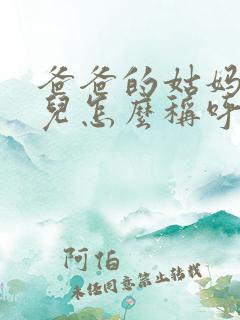 爸爸的姑媽
兒怎麼稱呼
阿伯
未经同意禁止转载